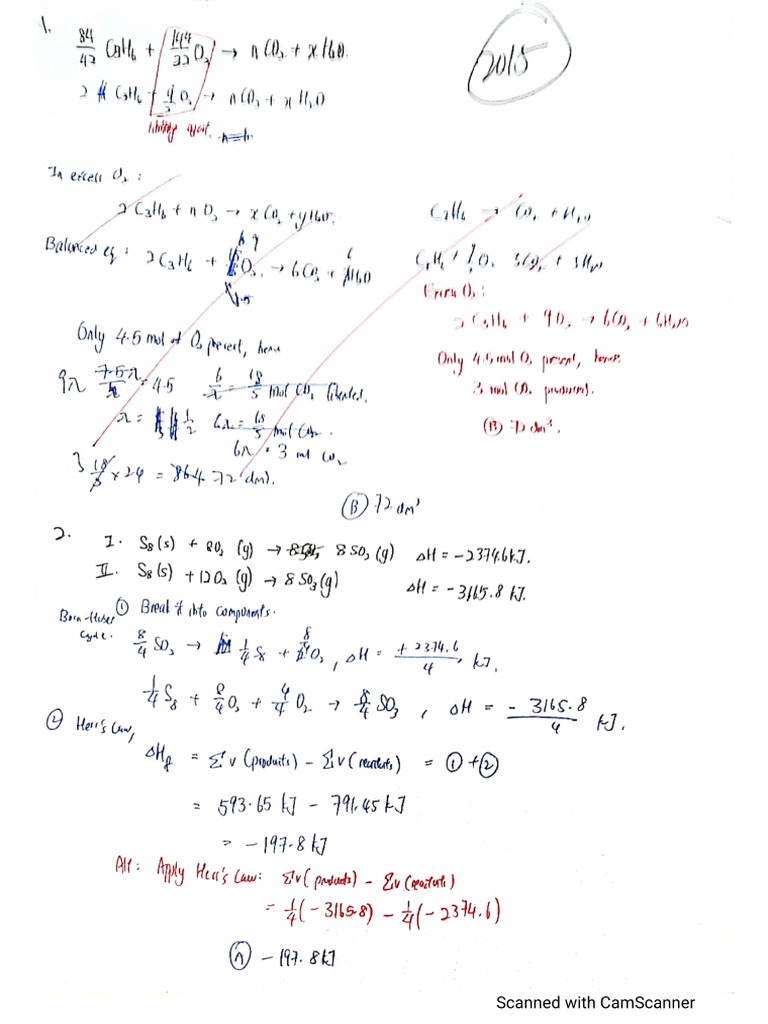 1.
2015
84/42 C3H6 + 144/32 O2 → nCO2 + xH2O
2 C3H6 + 9/2 O2 → nCO2 + xH2O
limiting agent.
In excess O2:
2C3H6 + nO2 → xCO2 + yH2O
C3H6 → CO2 + H2O
Balanced eq: 2C3H6 + O2 → 6CO2 + H2O
C3H6 + O2 3CO2 + 3H2O
Excess O2:
2C3H6 + 9O2 → 6CO2 + 6H2O
Only 4.5 mol of O2 present, hence
Only 4.5 mol O2 present, hence
3 mol CO2 produced.
9x = 4.5 6/x = 18/5 mol CO2 liberated.
(B) 72 dm³.
x = 1/2 6x = 18/5 mol CO2.
6x = 3 mol CO2
3 × 24 = 86.4 72 dm³.
(B) 72 dm³
2. I. S8(s) + 8O2(g) → 8SO2(g) ΔH = -2374.6kJ.
II. S8(s) + 12O2(g) → 8SO3(g) ΔH = -3165.8 kJ.
Born-Haber Cycle. ① Break it into components.
8/4 SO2 → 1/4 S8 + 8/4 O2, ΔH = +2374.6/4 kJ.
1/4 S8 + 8/4 O2 + 4/4 O2 → 8/4 SO3, ΔH = -3165.8/4 kJ.
② Hess's Law,
ΔHf = Σv(products) - Σv(reactants) = ① + ②
= 593.65 kJ - 791.45 kJ
= -197.8 kJ
Alt: Apply Hess's Law: Σv(products) - Σv(reactants)
= 1/4(-3165.8) - 1/4(-2374.6)
(A) -197.8 kJ
Scanned with CamScanner